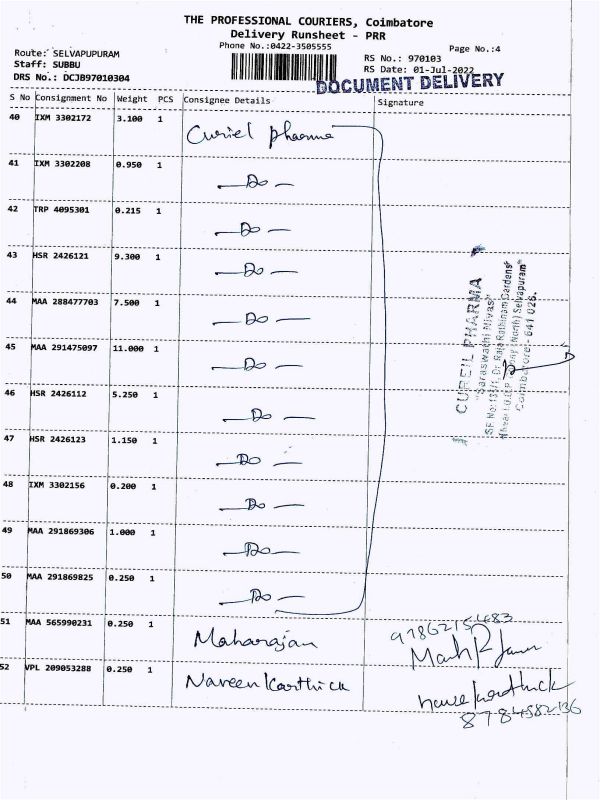 THE PROFESSIONAL COURIERS, Coimbatore
Delivery Runsheet - PRR
Phone No.:0422-3505555
Page No.:4
Route: SELVAPUPURAM
Staff: SUBBU
DRS No.: DCJB97010304
RS No.: 970103
RS Date: 01-Jul-2022
DOCUMENT DELIVERY
S No Consignment No Weight PCS Consignee Details Signature
40 IXM 3302172 3.100 1 Curiel pharma
41 IXM 3302208 0.950 1 — Do —
42 TRP 4095301 0.215 1 — Do —
43 HSR 2426121 9.300 1 — Do —
44 MAA 288477703 7.500 1 — Do —
45 MAA 291475097 11.000 1 — Do —
46 HSR 2426112 5.250 1 — Do —
47 HSR 2426123 1.150 1 — Do —
48 IXM 3302156 0.200 1 — Do —
49 MAA 291869306 1.000 1 — Do —
50 MAA 291869825 0.250 1 — Do —
CUREIL PHARMA
"Saraswathi Nivas"
SF.No:131/1, Dr. Raja Rathinam Gardens
(North) Selvapuram
Coimbatore - 641 026.
51 MAA 565990231 0.250 1 Maharajan
9786215483
52 VPL 209053288 0.250 1 Naveen Karthick
8784582136